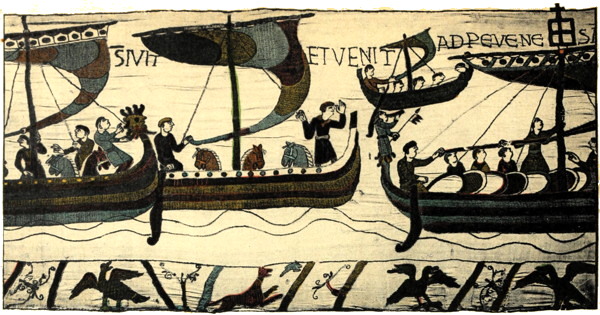 SIVIT ET VENIT AD PEVENE SI